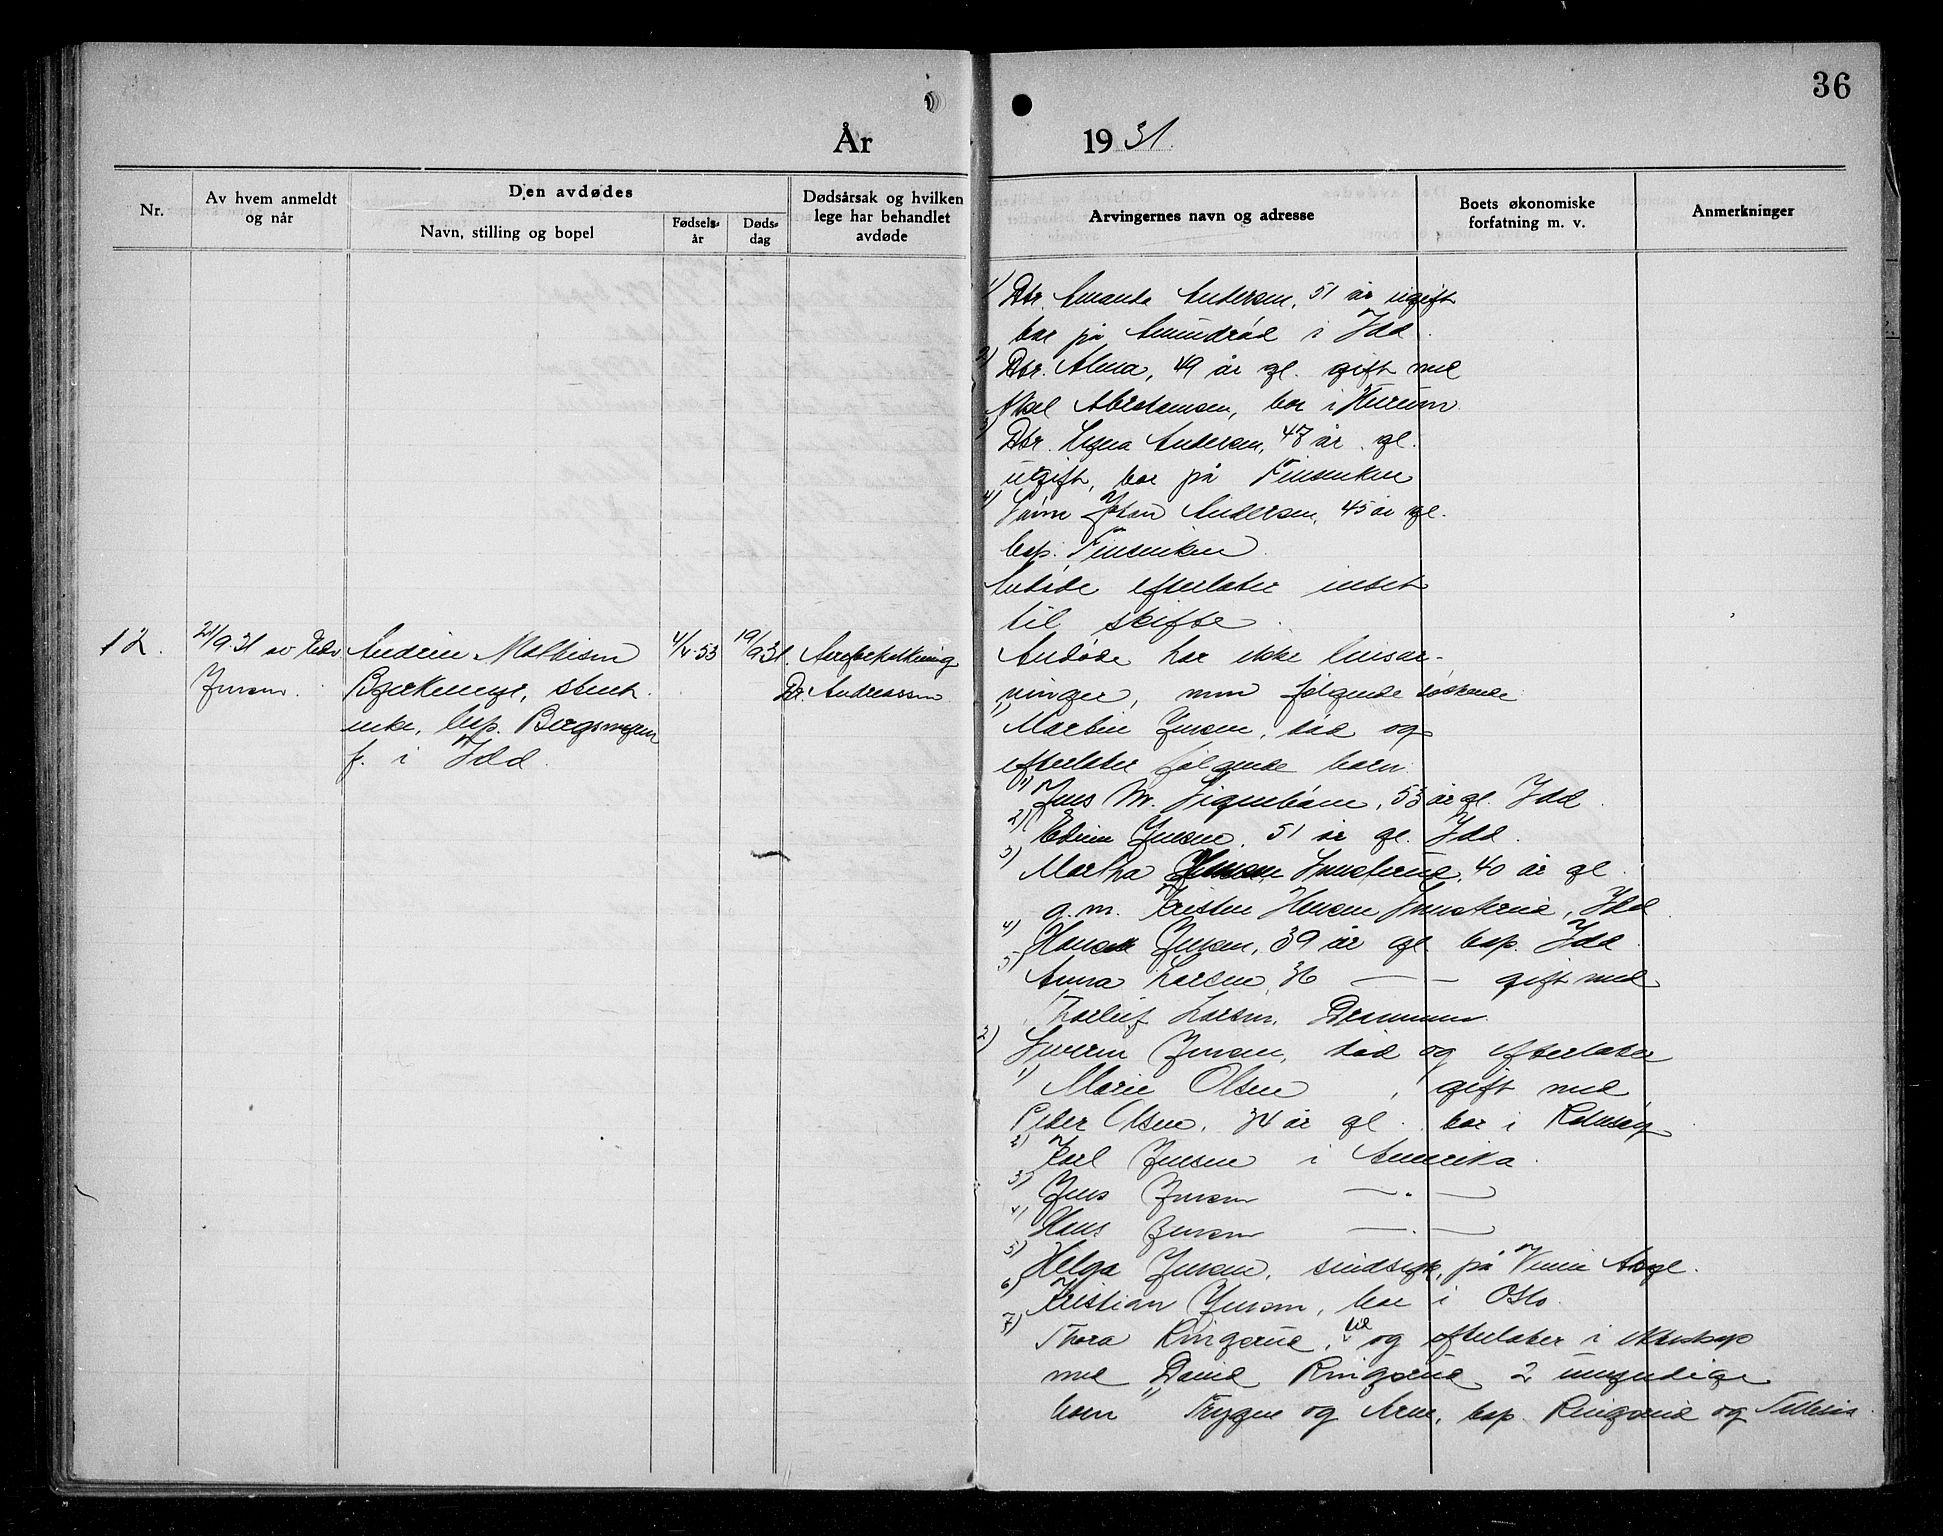 36
År 1931.
Nr.
Av hvem anmeldt
og når
Den avdødes
Navn, stilling og bopel
Fødsels-
år
Døds-
dag
Dødsårsak og hvilken
lege har behandlet
avdøde
Arvingernes navn og adresse
Boets økonomiske
forfatning m. v.
Anmerkninger
1) Dtr. Amanda Andersen, 51 år ugift
bor på Amundrød i Idd.
2) Dtr. Alma, 49 år gl. gift med
Aksel Abrahamsen, bor i Hurum.
3) Dtr. Andersen, 47 år gl.
ugift, bor på
4) Sønn Johan Andersen, 45 år gl.
bop.
Avdøde efterlater intet
til skifte.
12.
21/9.31 av Edv
Jensen.
Andrine Mathisen
Bjerkemyr,
enke, bop. Bergsmyren
f. i Idd.
4/4.53
19/9 31.
Areforkalkning
Dr. Andreassen
Avdøde har ikke livsar-
vinger, men følgende søskende
1) Martin Jensen, død og
efterlater følgende barn:
1) Jens M. Signebøen, 53 år gl. Idd.
2) Edvin Jensen, 51 år gl. Idd.
3) Martha 40 år gl.
g.m. Kristen Hansen Idd.
4) Hans Jensen, 39 år gl bop. Idd.
5) Anna Larsen, 36 — — gift med
Thorleif Larsen, Drammen.
2) Severin Jensen, død og efterlater
1) Marie Olsen, gift med
Peder Olsen, 34 år gl. bor i
2) Karl Jensen i Amerika.
3) Jens Jensen — " —
4) Hans Jensen — " —
5) Helga Jensen, sindsyk, på Asyl.
6) Kristian Jensen, bor i Oslo.
7) Thora Ringerud, død og efterlater i ekteskap
med David Ringerud 2 umyndige
barn Trygve og Arne, bop. Ringerud og